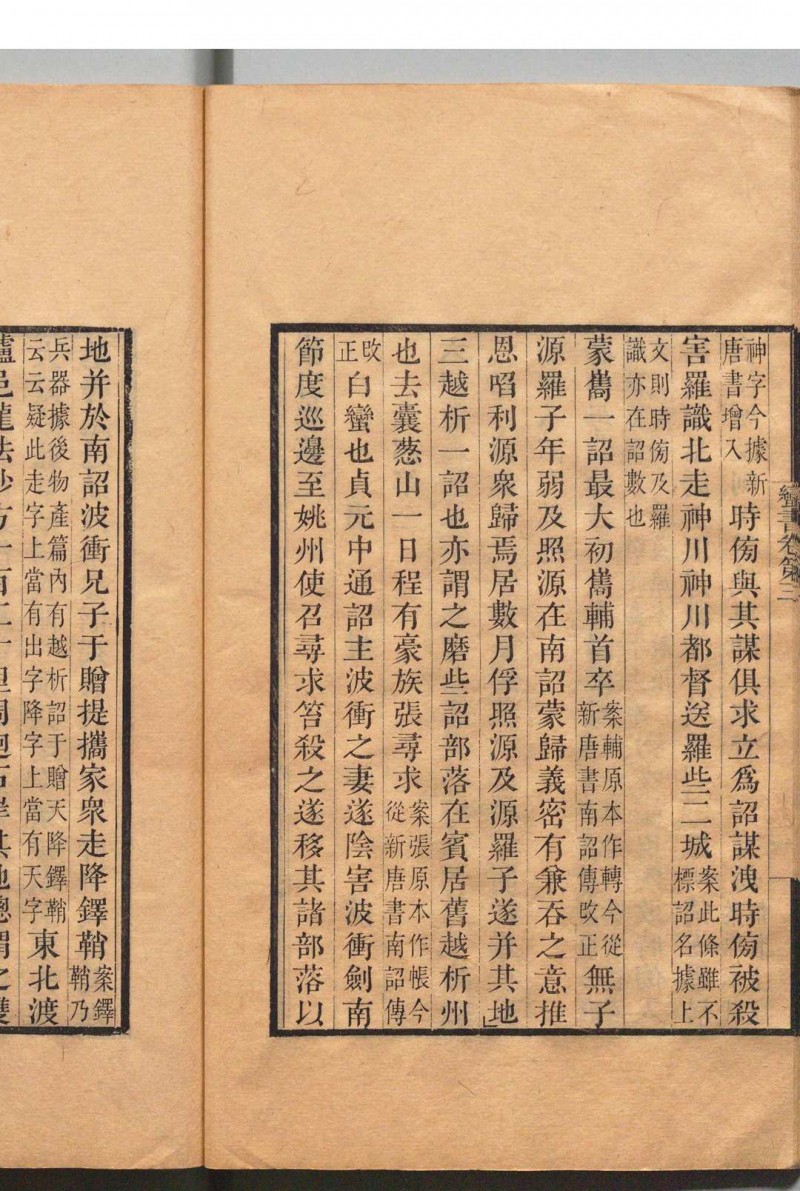 蠻書卷第三
神字今據新
唐書增入
時傍與其謀俱求立爲詔謀洩時傍被殺
害羅識北走神川神川都督送羅些二城
案此條雖不
標詔名據上
文則時傍及羅
識亦在詔數也
蒙巂一詔最大初巂輔首卒
案輔原本作轉今從
新唐書南詔傳改正
無子
源羅子年弱及照源在南詔蒙歸義密有兼吞之意推
恩啗利源衆歸焉居數月俘照源及源羅子遂并其地
三越析一詔也亦謂之磨些詔部落在賓居舊越析州
也去囊葱山一日程有豪族張尋求
案張原本作帳今
從新唐書南詔傳
改
正
白蠻也貞元中通詔主波衝之妻遂陰害波衝劍南
節度巡邊至姚州使召尋求笞殺之遂移其諸部落以
地并於南詔波衝兄子于贈提攜家衆走降鐸鞘
案鐸
鞘乃
兵器據後物產篇內有越析詔于贈天降鐸鞘
云云疑此走字上當有出字降字上當有天字
東北渡